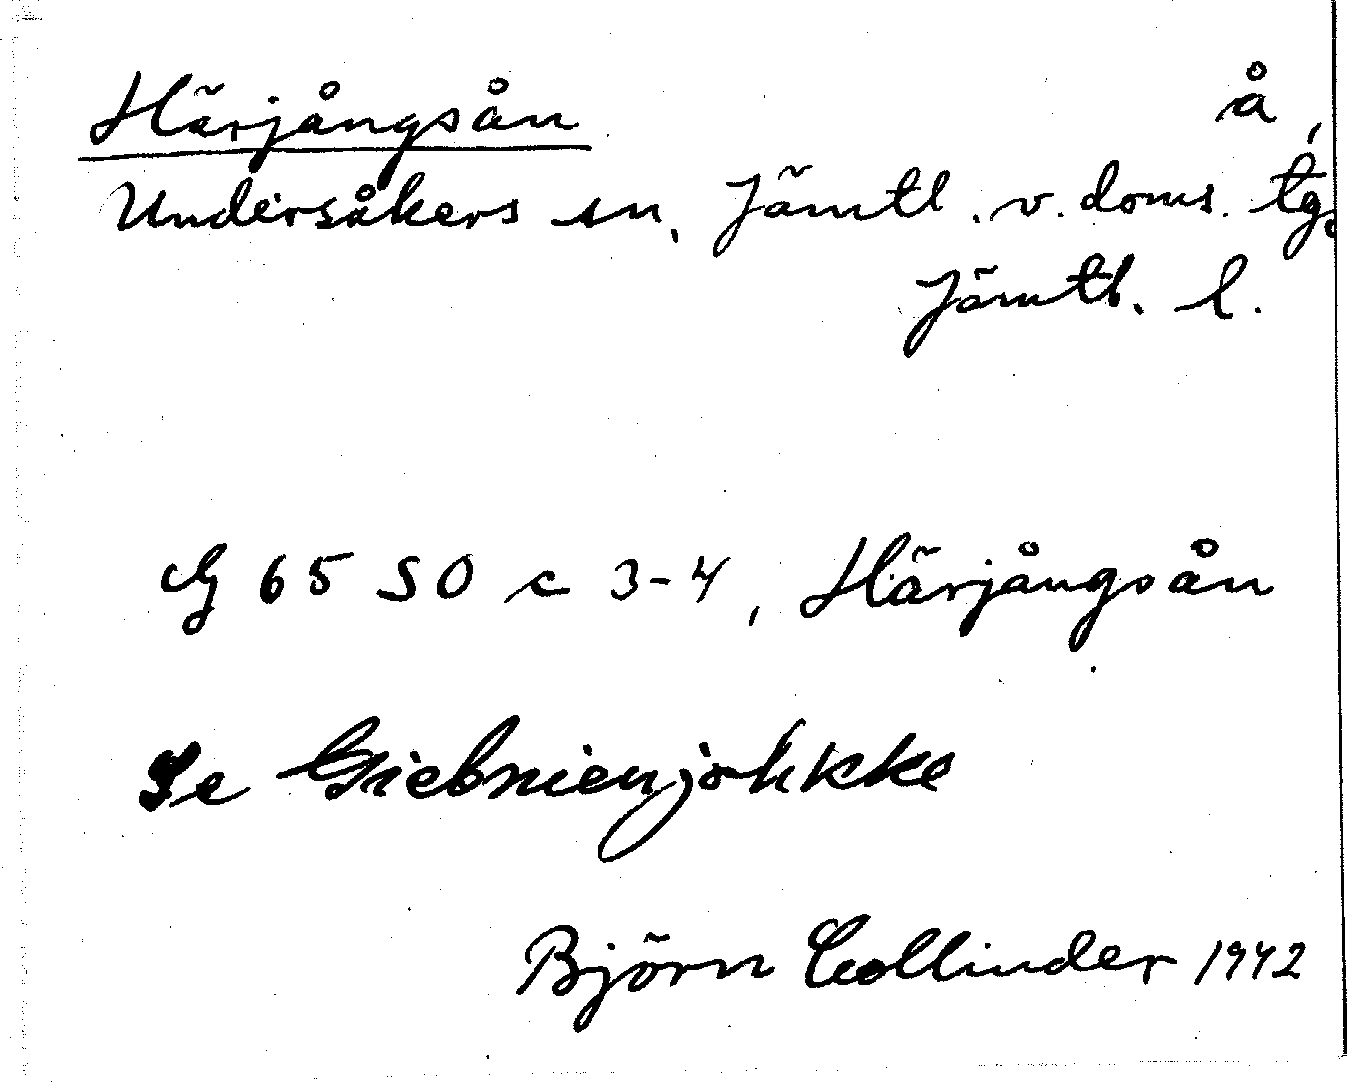 Härjångsån å,
Undersåkers sn, Jämtl. v. doms. tg.
Jämtl. l.
G 65 SO c 3-4, Härjångsån
Se Giebnienjokkke
Björn Collinder 1942